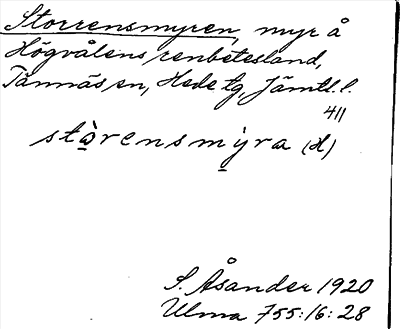 Storrensmyren, myr å
Högvålens renbetesland,
Tännäs en, Hede tg, Jämtl. l.
411
stò̱rensmỳ̱ra (d)
S. Åsander 1920
Ulma 755:16:28